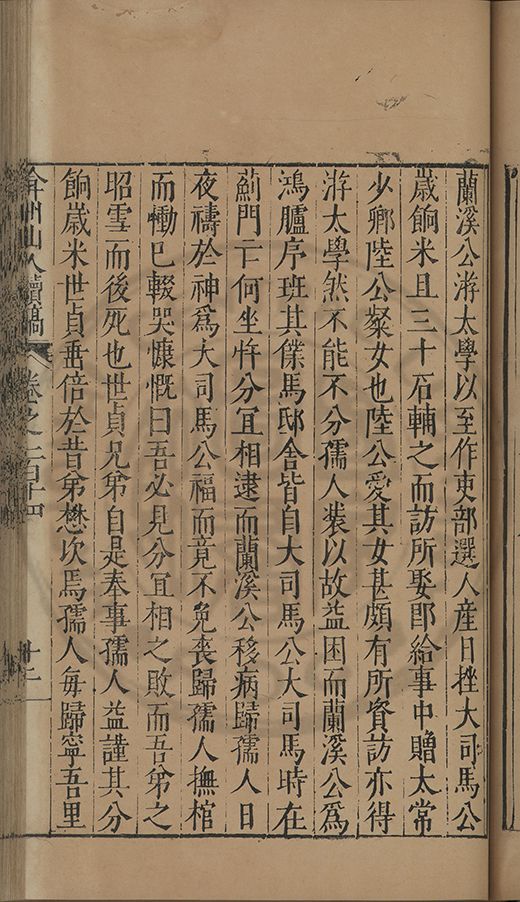 蘭溪公游太學以至作吏部選人産日挫大司馬公
歲餉米且三十石輔之而訪所娶卽給事中贈太常
少卿陸公粲女也陸公愛其女甚頗有所資訪亦得
游太學然不能不分孺人裝以故益困而蘭溪公爲
鴻臚序班其僕馬邸舍皆自大司馬公大司馬時在
薊門亡何坐忤分宜相逮而蘭溪公移病歸孺人日
夜禱於神爲大司馬公福而竟不免喪歸孺人撫棺
而慟已輟哭慷慨曰吾必見分宜相之敗而吾弟之
昭雪而後死也世貞兄弟自是奉事孺人益謹其分
餉歲米世貞乖倍於昔弟懋次焉孺人每歸寧吾里
弇州山人續稿 卷之一百十四 十二